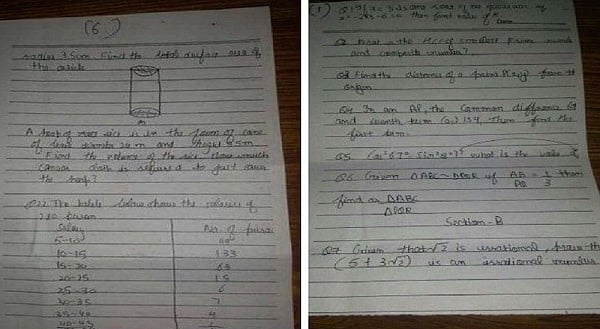 (6)
radius 3.5cm Find the total surface area of
the article
A heap of rice is in the form of cone
of base diameter 24 m and height 3.5m.
Find the volume of the rice. How much
canvas cloth is required to just cover
the heap?
Q22 The table below shows the salaries of
280 person
Salary No. of person
5-10 49
10-15 133
15-20 63
20-25 15
25-30 6
30-35 7
35-40 4
40-45
(1)
than find value of K
Q2 What is the HCF of smallest prime
and composite number?
Q3 Find the distance of a point P(x,y) from the
origin
Q4 In an AP, the common difference
and seventh term (a7) is 4, Then find the
first term.
Q5 what is the value
Q6 Given ΔABC ~ ΔPQR if AB/PQ = 1/3 then
find ar ΔABC
ΔPQR
Section-B
Q7 Given that √2 is irrational, prove th
(5 + 3√2) is an irrational number